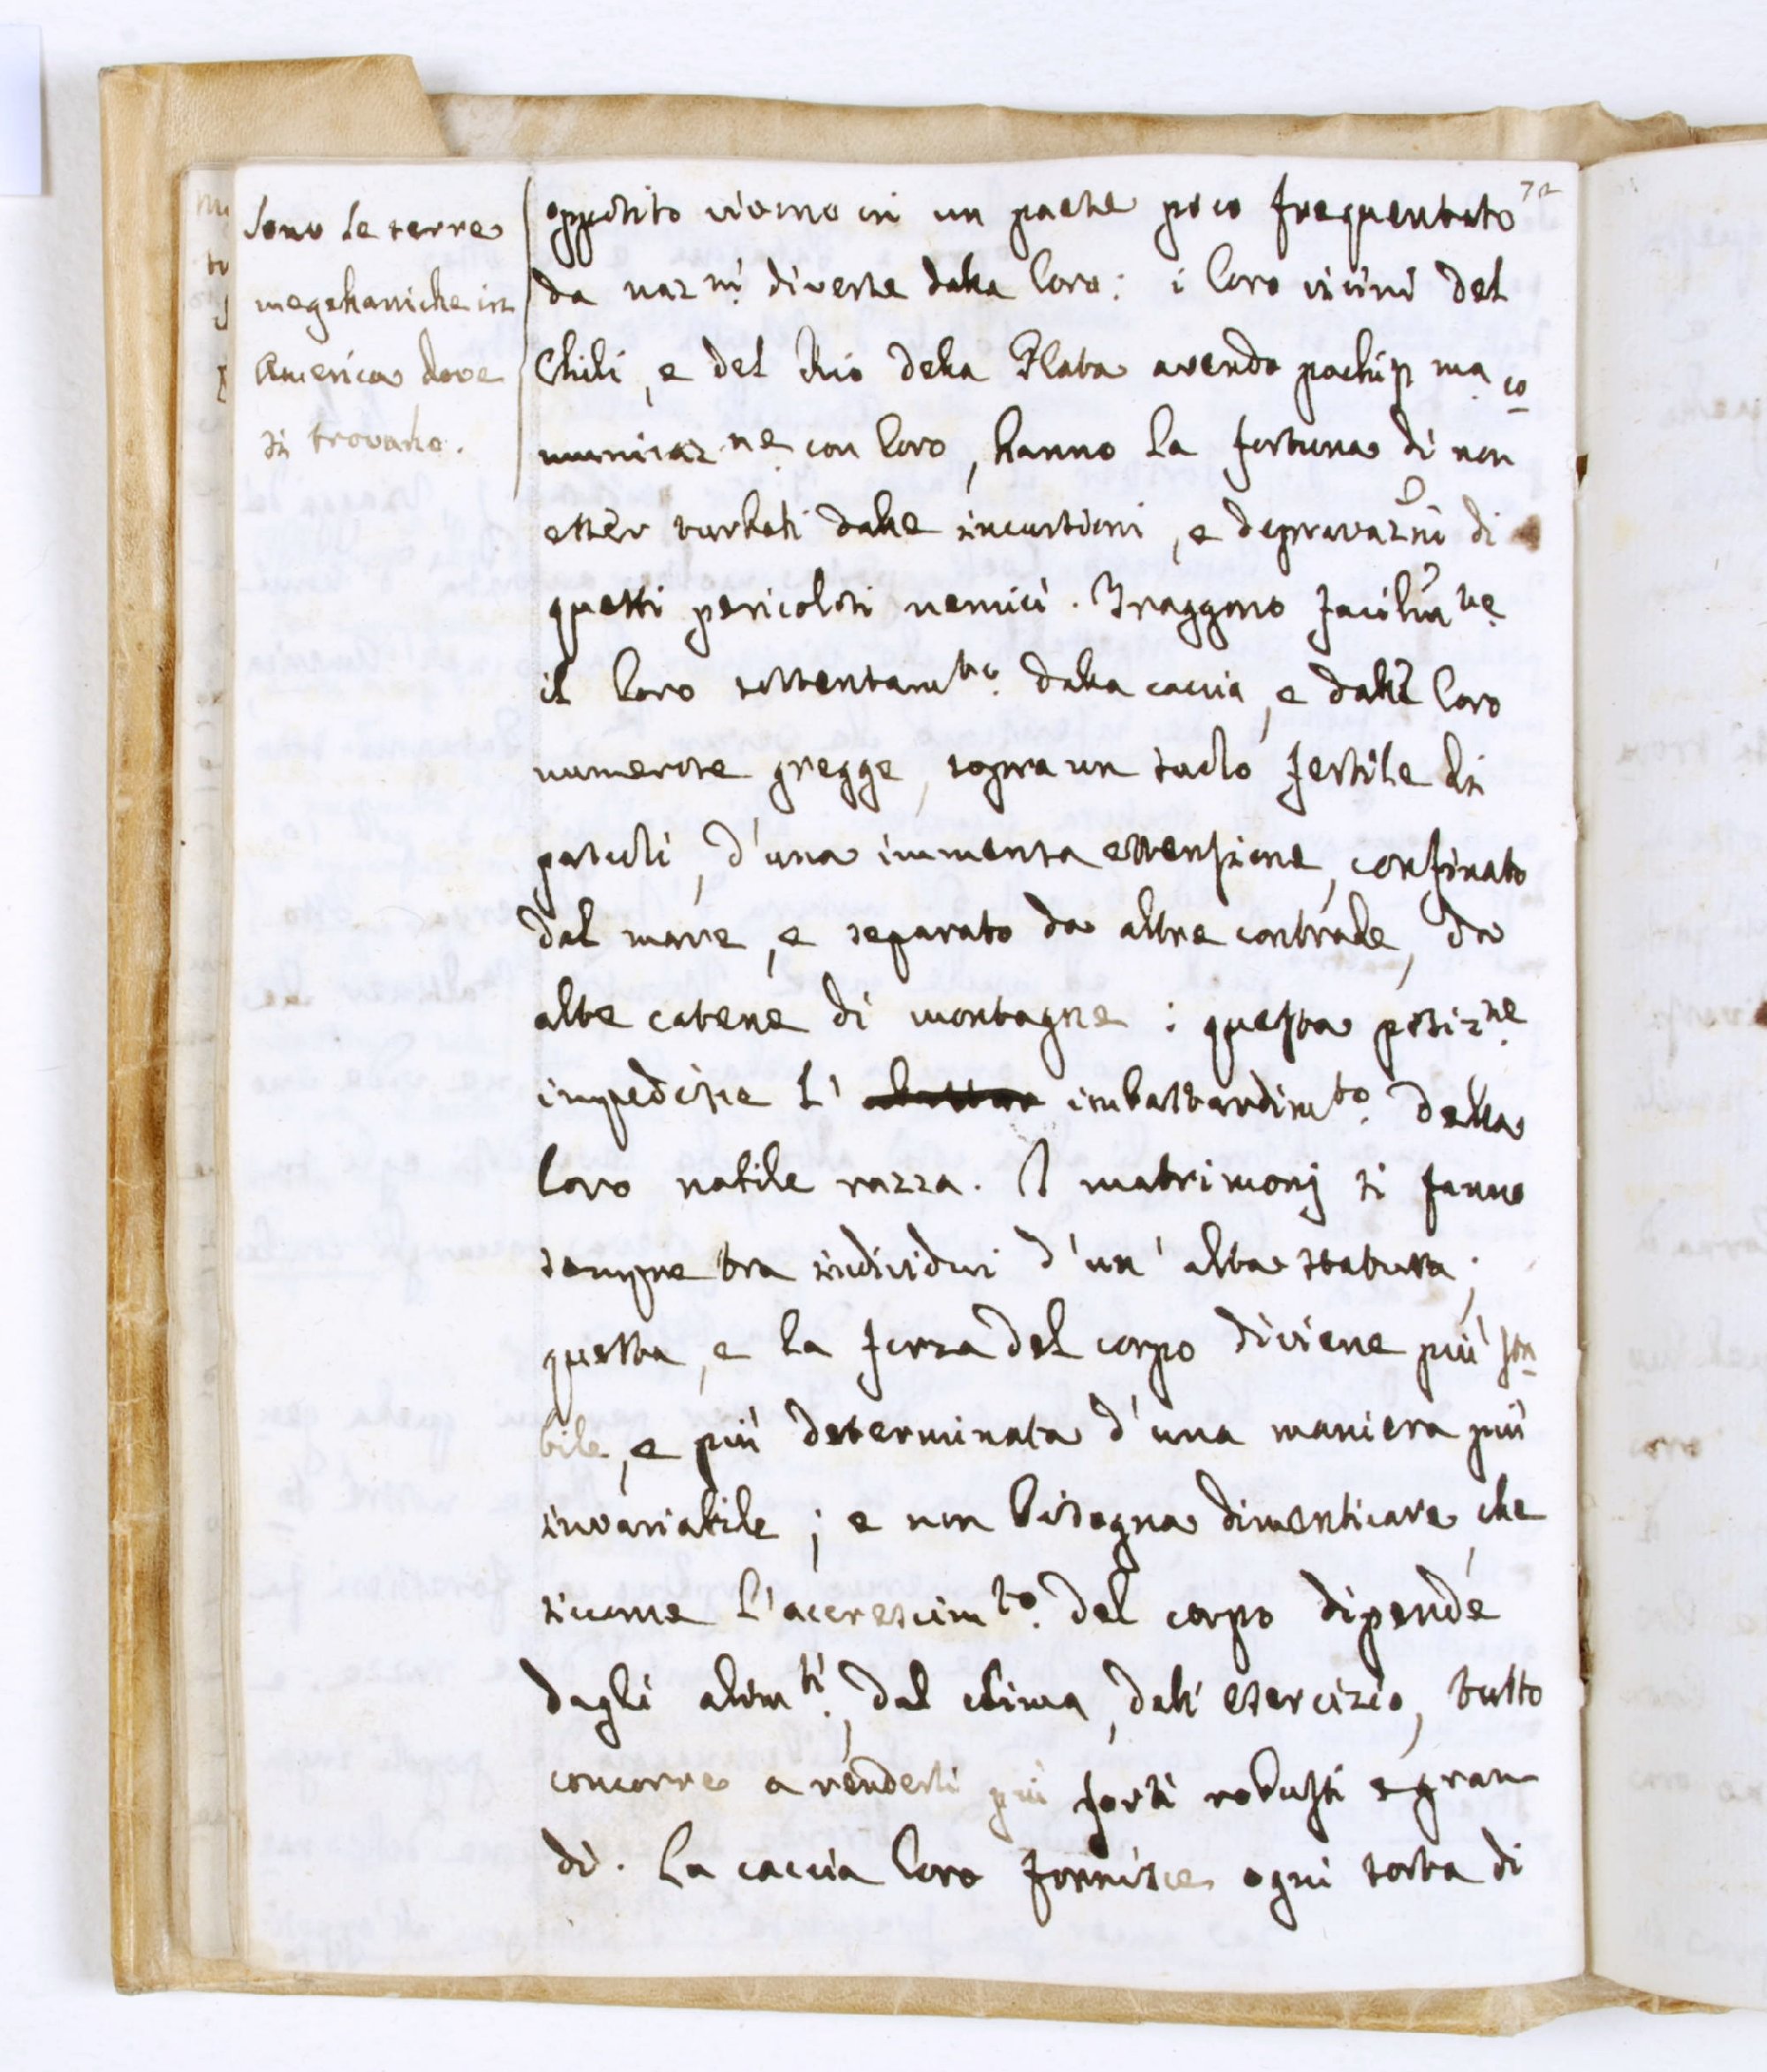 72
Sono le terre
megellaniche in
America dove
si trovano.
opposito vivono in un paese poco frequentato
da naz.ni diverse dalla loro: i loro vicini del
Chili, e del Rio della Plata avendo pochiss.ma co-
municaz.ne con loro, hanno la fortuna di non
esser turbati dalle incursioni, e depravaz.ni di
questi pericolosi nemici. Traggono facilm.te
il loro sostentam.to dalla caccia, e dalle loro
numerose gregge, sopra un suolo fertile di
pascoli, d'una immensa estensione, confinato
dal mare, e separato da altre contrade, da
alte catene di montagne: questa posiz.ne
impedisce l' imbastardim.to della
loro natile razza. I matrimonj si fanno
sempre tra individui d'un'alta statura;
questa, e la forza del corpo diviene più
bile, e più determinata d'una maniera più
invariabile; e non bisogna dimenticare, che
siccome l'acrescim.to del corpo dipende
dagli alim.ti, dal clima, dall'esercizio, tutto
concorre a renderli più forti robusti e gran
di. La caccia loro fornisce ogni sorta di